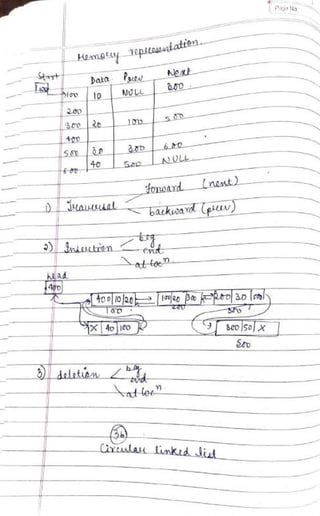 Page No
Memory representation.
Start Data Prev Next
100 100 10 NULL 300
200
300 20 100 500
400
500 30 300 600
600 40 500 NULL
1) Traversal Forward (next)
backward (prev)
2) Insertion beg
end
at locn
head
400
400|10|20 100|20|300 200|30|
100 200 300
X|40|100 300|50|X
500
3) deletion beg
end
at locn
3b
Circular linked list